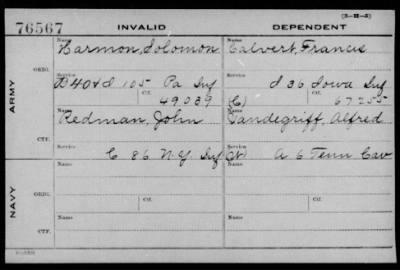 (3-H-5)
76567 INVALID DEPENDENT
Name Name
Harmon, Solomon Calvert, Francis
ARMY
ORIG. Service Service
105 Pa Inf I 36 Iowa Inf
Ctf. Ctf.
49039 (C) 67255
Name Name
Redman, John Vandegriff, Alfred
CTF. Service Service
C 86 N.Y. Inf A 6 Tenn Cav
NAVY
Name Name
ORIG. Service Ctf. Service Ctf.
Name Name
CTF. Service Service